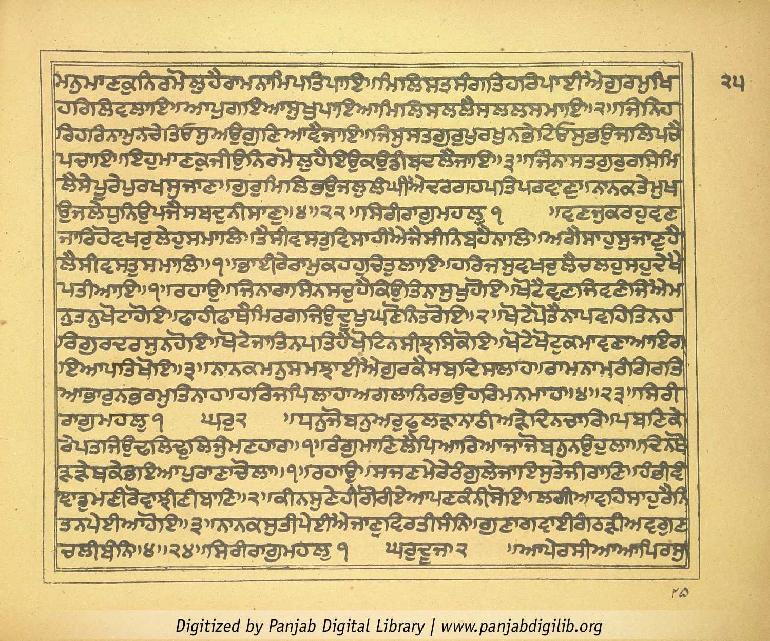 ੨੫
ਮਨੁਮਾਣਕੁਨਿਰਮੋਲੁਹੈਰਾਮਨਾਮਿਪਤਿਪਾਇ॥ਮਿਲਿਸਤਸੰਗਤਿਹਰਿਪਾਈਐਗੁਰਮੁਖਿ
ਹਰਿਲਿਵਲਾਇ॥ਆਪੁਗਇਆਸੁਖੁਪਾਇਆਮਿਲਿਸਲਲੈਸਲਲਸਮਾਇ॥੨॥ਜਿਨਿਹ
ਰਿਹਰਿਨਾਮੁਨਚੇਤਿਓਸੁਅਉਗੁਣਿਆਵੈਜਾਇ॥ਜਿਸੁਸਤਗੁਰੁਪੁਰਖੁਨਭੇਟਿਓਸੁਭਉਜਲਿਪਚੈ
ਪਚਾਇ॥ਇਹੁਮਾਣਕੁਜੀਉਨਿਰਮੋਲੁਹੈਇਉਕਉਡੀਬਦਲੈਜਾਇ॥੩॥ਜਿੰਨਾਸਤਗੁਰੁਰਸਿਮਿ
ਲੈਸੇਪੂਰੇਪੁਰਖਸੁਜਾਣ॥ਗੁਰਮਿਲਿਭਉਜਲੁਲੰਘੀਐਦਰਗਹਪਤਿਪਰਵਾਣੁ॥ਨਾਨਕਤੇਮੁਖ
ਉਜਲੇਧੁਨਿਉਪਜੈਸਬਦੁਨੀਸਾਣੁ॥੪॥੨੨॥ਸਿਰੀਰਾਗੁਮਹਲੁ ੧ ॥ਵਣਜੁਕਰਹੁਵਣ
ਜਾਰਿਹੋਵਖਰੁਲੇਹੁਸਮਾਲਿ॥ਤੈਸੀਵਸਤੁਵਿਸਾਹੀਐਜੈਸੀਨਿਬਹੈਨਾਲਿ॥ਅਗੈਸਾਹੁਸੁਜਾਣੁਹੈ
ਲੈਸੀਵਸਤੁਸਮਾਲਿ॥੧॥ਭਾਈਰੇਰਾਮੁਕਹਹੁਚਿਤੁਲਾਇ॥ਹਰਿਜਸੁਵਖਰੁਲੈਚਲਹੁਸਹੁਦੇਖੈ
ਪਤੀਆਇ॥੧॥ਰਹਾਉ॥ਜਿਨਾਰਾਸਿਨਸਚੁਹੈਕਿਉਤਿਨਾਸੁਖੁਹੋਇ॥ਖੋਟੈਵਣਜਿਵਣੰਜਿਐਮ
ਨੁਤਨੁਖੋਟਾਹੋਇ॥ਫਾਹੀਫਾਥੇਮਿਰਗਜਿਉਦੂਖੁਘਣੋਨਿਤਰੋਇ॥੨॥ਖੋਟੇਪੋਤੈਨਾਪਵਹਿਤਿਨਹ
ਰਿਗੁਰਦਰਸੁਨਹੋਇ॥ਖੋਟੇਜਾਤਿਨਪਤਿਹੈਖੋਟਿਨਸੀਝਸਿਕੋਇ॥ਖੋਟੇਖੋਟੁਕਮਾਵਣਾਆਇਗ
ਇਆਪਤਿਖੋਇ॥੩॥ਨਾਨਕਮਨੁਸਮਝਾਈਐਗੁਰਕੈਸਬਦਿਸਾਲਾਹ॥ਰਾਮਨਾਮਰੰਗਿਰਤਿ
ਆਭਾਰੁਨਭਰਮੁਤਿਨਾਹ॥ਹਰਿਜਪਿਲਾਹਾਅਗਲਾਨਿਰਭਉਹਰਿਮਨਮਾਹ॥੪॥੨੩॥ਸਿਰੀ
ਰਾਗੁਮਹਲੁ ੧ ਘਰੁ੨ ॥ਧਨੁਜੋਬਨੁਅਰੁਫੁਲੜਾਨਾਠੀਅੜੇਦਿਨਚਾਰਿ॥ਪਬਣਿਕੇ
ਰੇਪਤਜਿਉਢਲਿਢੁਲਿਜੁੰਮਣਹਾਰ॥੧॥ਰੰਗੁਮਾਣਿਲੈਪਿਆਰਿਆਜਾਜੋਬਨੁਨਉਹੁਲਾ॥ਦਿਨਥੋ
ੜੜੇਥਕੇਭਇਆਪੁਰਾਣਾਚੋਲਾ॥੧॥ਰਹਾਉ॥ਸਜਣਮੇਰੇਰੰਗੁਲੇਜਾਇਸੁਤੇਜੀਰਾਣਿ॥ਹੰਭੀਵੰ
ਞਾਡੁਮਣੀਰੋਵਾਝੀਣੀਬਾਣਿ॥੨॥ਕੀਨਸੁਣੇਹੀਗੋਰੀਏਆਪਣਕੰਨੀਸੋਇ॥ਲਗੀਆਵਹਿਸਾਹੁਰੈਨਿ
ਤਨਪੇਈਆਹੋਇ॥੩॥ਨਾਨਕਸੁਤੀਪੇਈਐਜਾਣੁਵਿਰਤੀਸੰਨਿ॥ਗੁਣਾਗਵਾਈਗੰਠੜੀਅਵਗੁਣ
ਚਲੀਬੰਨਿ॥੪॥੨੪॥ਸਿਰੀਰਾਗੁਮਹਲੁ ੧ ਘਰੁਦੂਜਾ ੨ ॥ਆਪੇਰਸੀਆਆਪਿਰਸੁ
੨੫
Digitized by Panjab Digital Library | www.panjabdigilib.org